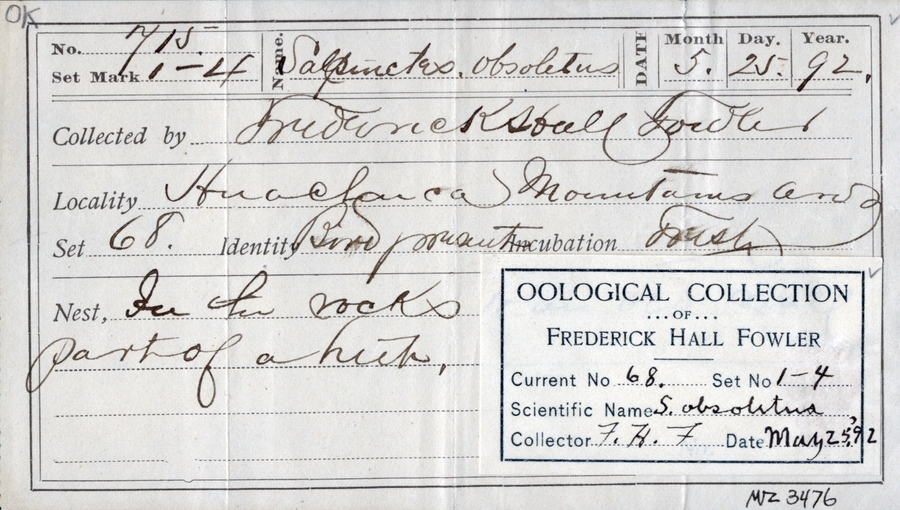 OK
No. 715.
Set Mark 1-4
Name. Salpinctes. obsoletus
DATE
Month Day. Year.
5. 25. 92.
Collected by Frederick Hall Fowler
Locality Huachuca Mountains
Set 68. Identity Bird Incubation Fresh
Nest, In the rocks
part of a
OOLOGICAL COLLECTION
...OF...
FREDERICK HALL FOWLER
Current No 68. Set No 1-4
Scientific Name S. obsoletus
Collector F. H. F Date May 25, 92
MVZ 3476